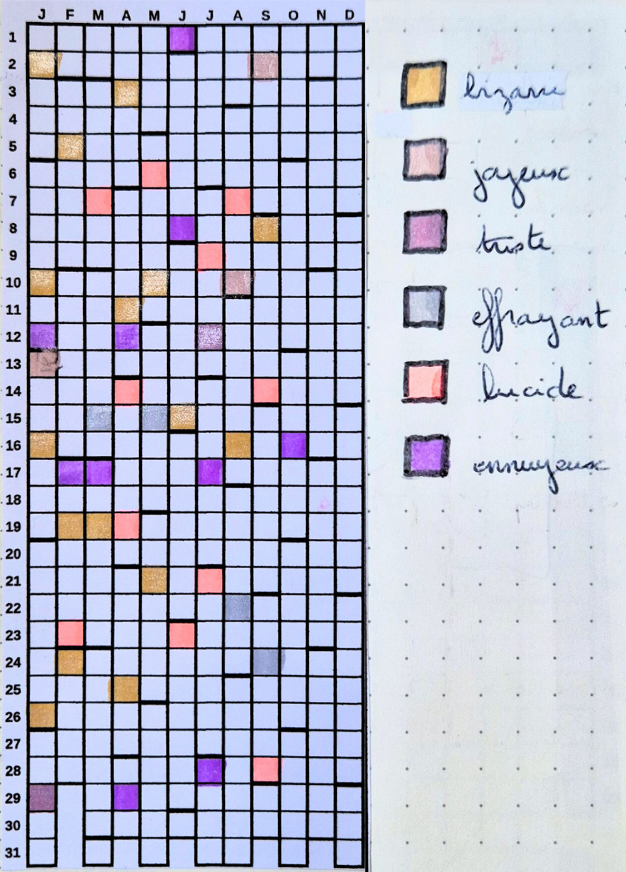 J F M A M J J A S O N D
1
2
3
4
5
6
7
8
9
10
11
12
13
14
15
16
17
18
19
20
21
22
23
24
25
26
27
28
29
30
31
bizarre
joyeux
triste
effrayant
lucide
ennuyeux